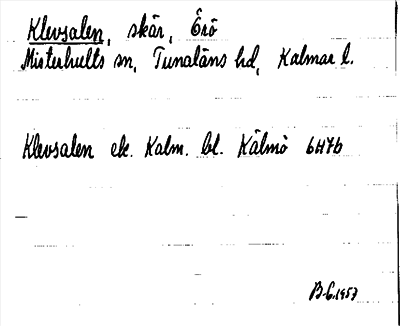 Klevsalen, skär, Örö
Misterhults sn, Tunaläns hd, Kalmar l.
Klevsalen ek. Kalm. bl. Kälmö 6H7b
B-G. 1957